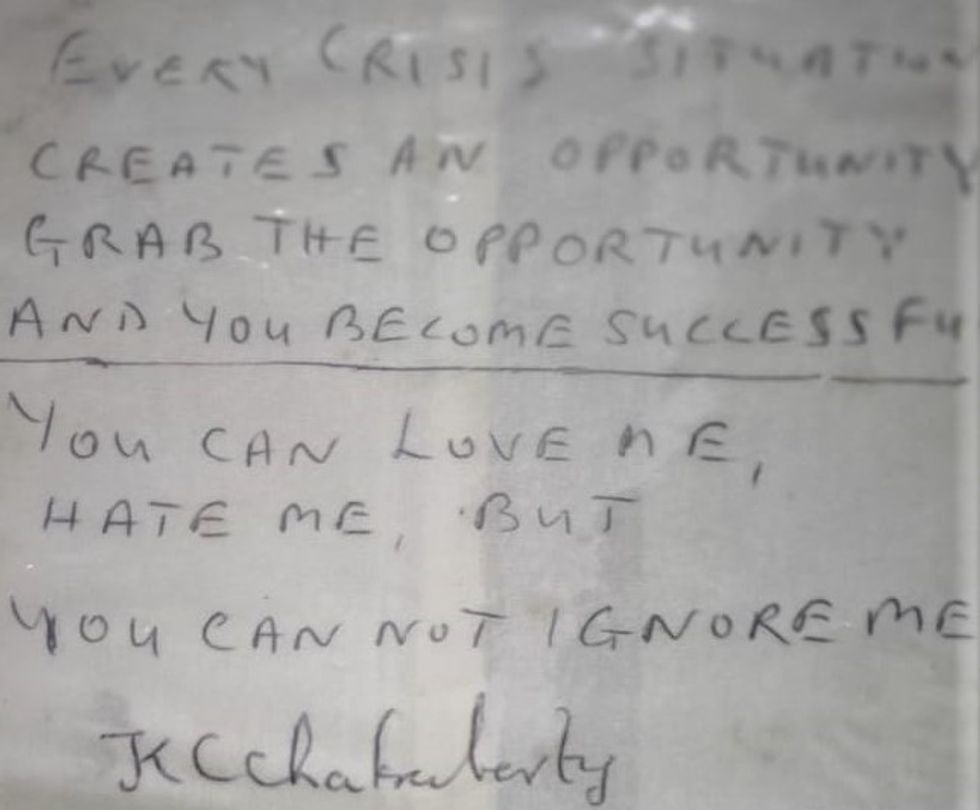 EVERY CRISIS SITUATION
CREATES AN OPPORTUNITY
GRAB THE OPPORTUNITY
AND YOU BECOME SUCCESSFU
YOU CAN LOVE ME,
HATE ME, BUT
YOU CAN NOT IGNORE ME
JKCchakraberty